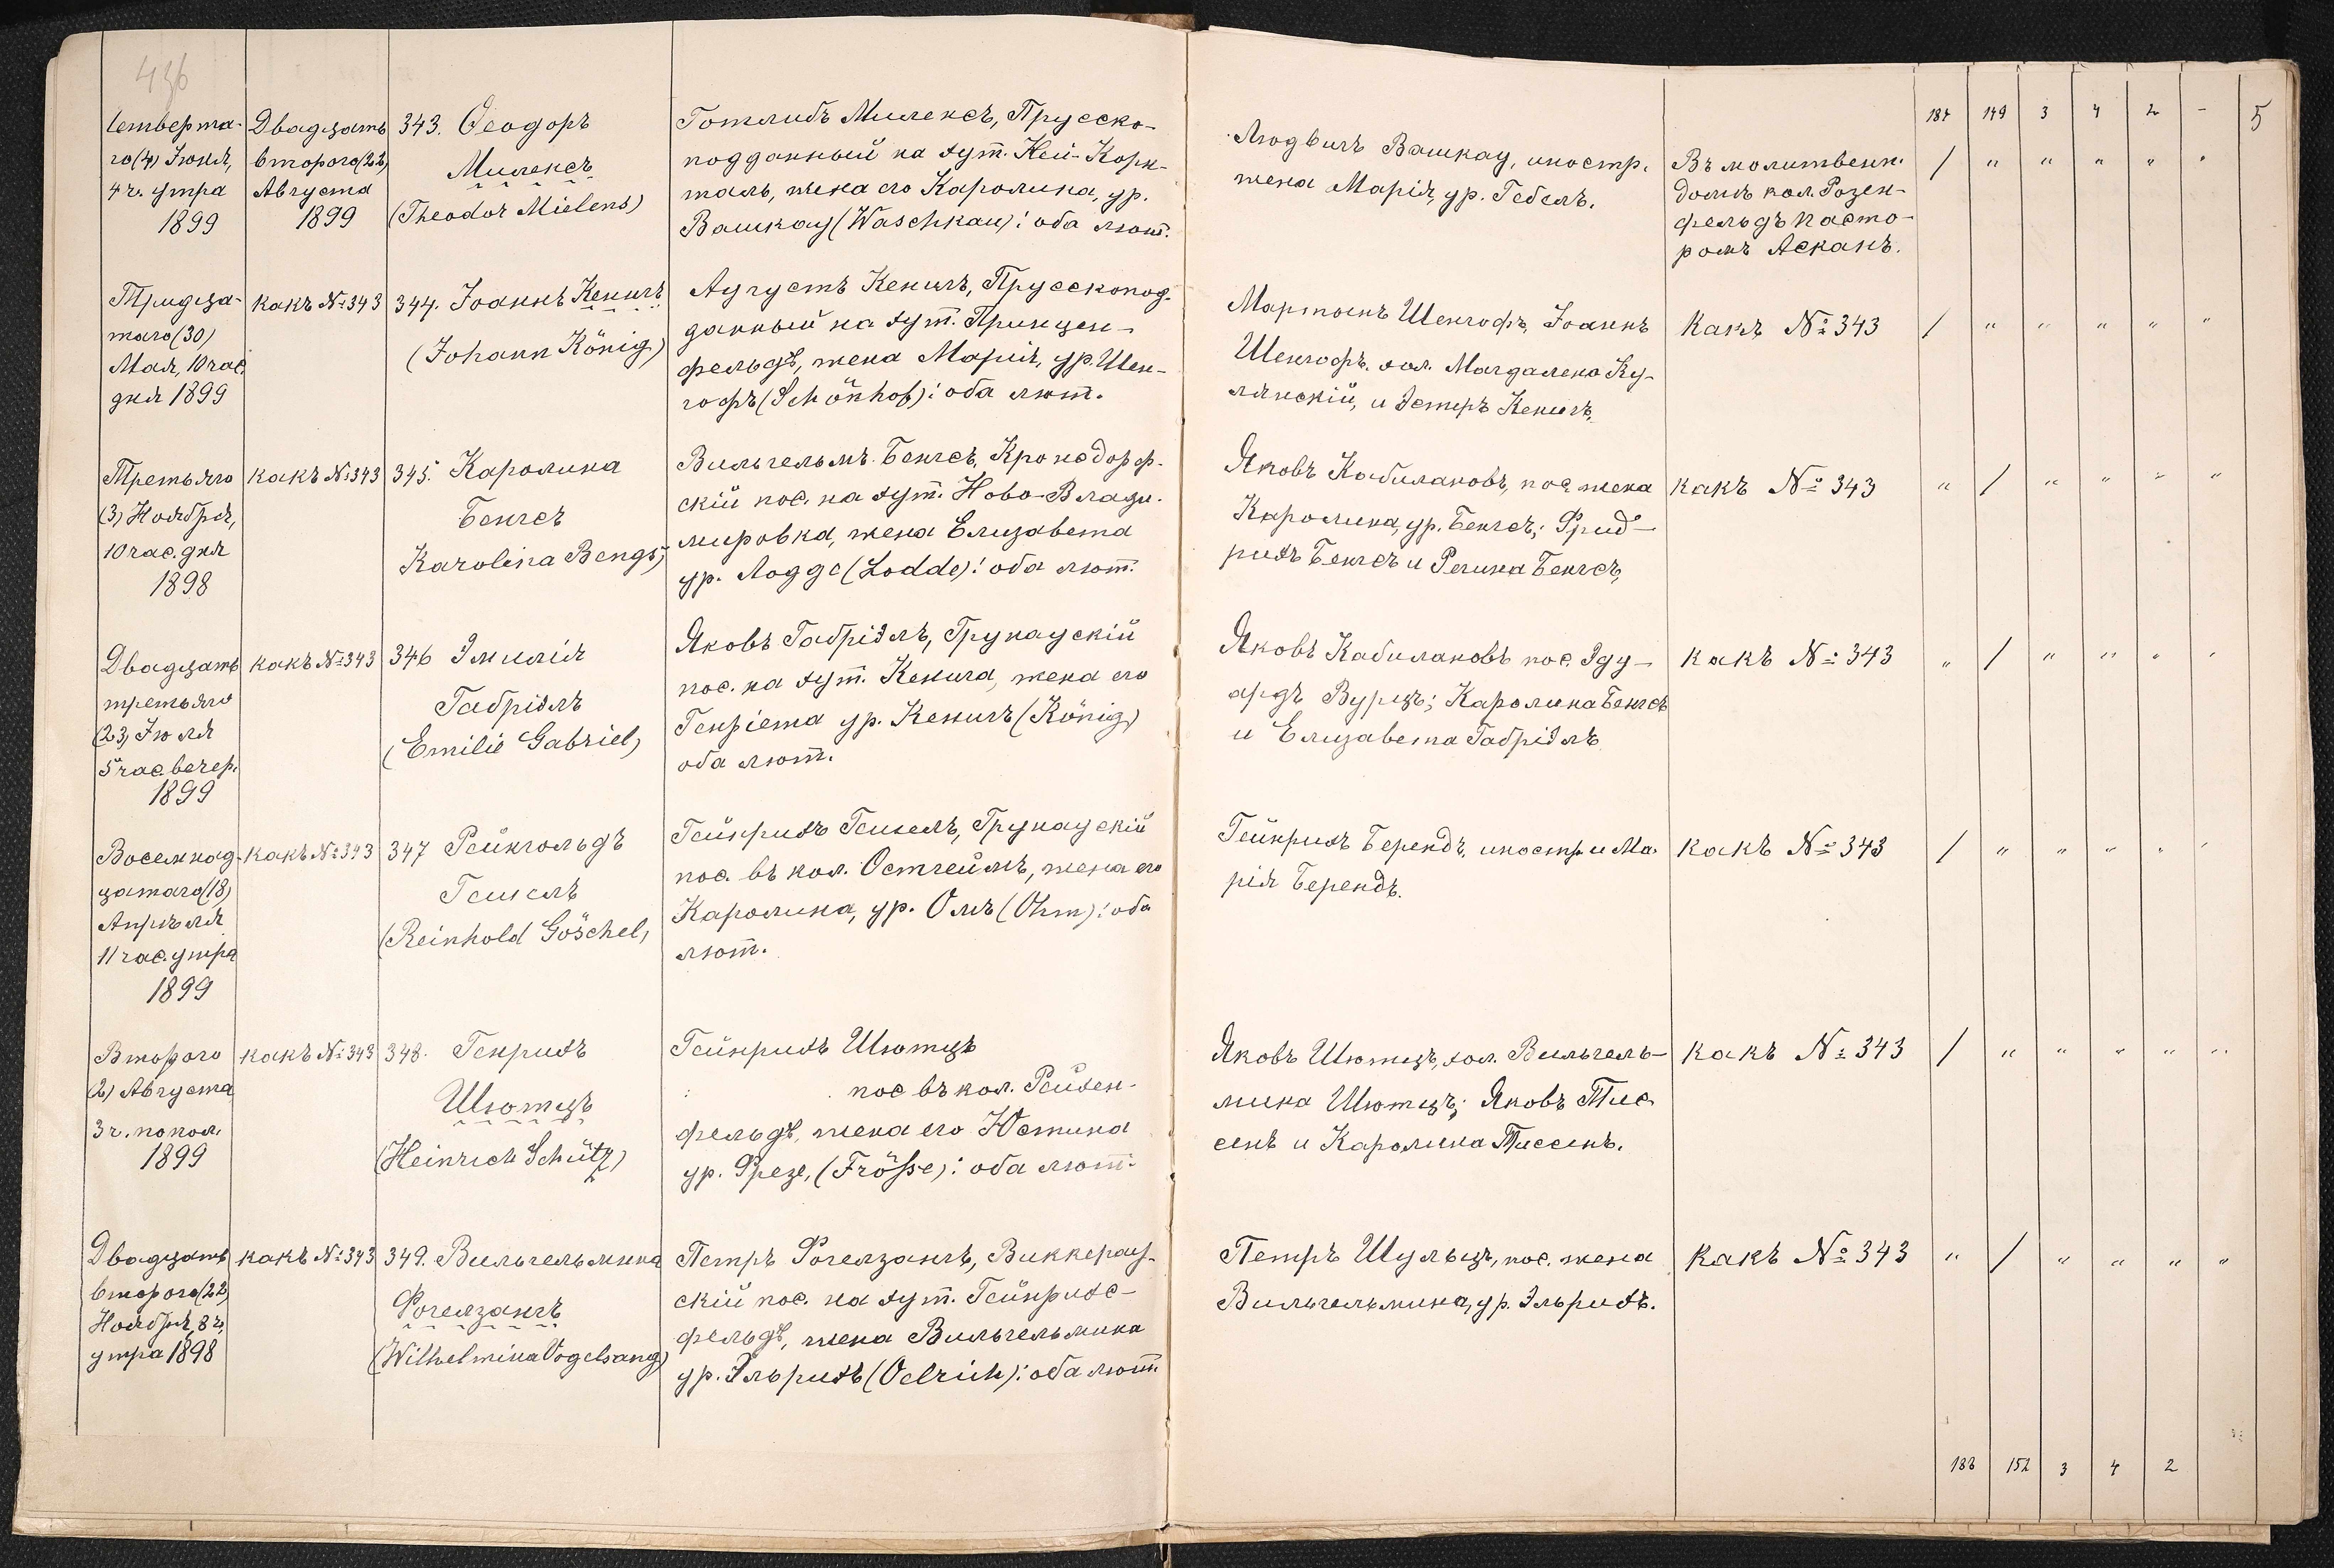 436
187 149 3 4 2 - 5
Четверта-
го (4) Іюня,
4 ч. утра
1899
Двадцать
второго (22)
Августа
1899
343. Ѳеодоръ
Миленсъ
(Theodor Mielens)
Готлибъ Миленсъ, Прусско-
подданный на хут. Ней-Корн-
таль, жена его Каролина, ур.
Вашкау (Waschkau): оба лют.
Людвигъ Вашкау, иностр.
жена Марія, ур. Гебель.
Въ молитвенн.
домѣ кол. Розен-
фельдъ пасто-
ромъ Асканъ.
/ " " " " "
Тридца-
таго (30)
Мая, 10 час.
дня 1899
какъ №343
344. Іоаннъ Кенигъ
(Johann König)
Аугустъ Кенигъ, Прусскопод-
данный на хут. Принцен-
фельдѣ, жена Марія, ур. Шен-
гофъ (Schönhof): оба лют.
Мартынъ Шенгофъ, Іоаннъ
Шенгофъ, хол. Магдалена Ку-
лянскій, и Эстеръ Кенигъ.
Какъ №343
/ " " " " "
Третьяго
(3) Ноября,
10 час. дня
1898
какъ №343
345. Каролина
Бенгсъ
Karolina Bengs)
Вильгельмъ Бенгсъ, Кронсдорф-
скій пос. на хут. Ново-Влади-
мировка, жена Елизавета
ур. Лодде (Lodde): оба лют.
Яковъ Кабилаковъ, пос. жена
Каролина, ур. Бенгсъ; Фрид-
рихъ Бенгсъ и Регина Бенгсъ,
какъ №343
" / " " " "
Двадцать
третьяго
(23) Іюля
5 час. вечер.
1899
какъ №343
346 Эмилія
Габріэль
(Emilie Gabriel)
Яковъ Габріэль, Грунаускій
пос. на хут. Кенига, жена его
Генріета ур. Кенигъ (König)
оба лют.
Яковъ Кабилаковъ пос. Эду-
ардъ Вурцъ; Каролина Бенгсъ
и Елизавета Габріэль
какъ №343
" / " " " "
Восемнад-
цатаго (18)
Апрѣля
11 час. утра
1899
какъ №343
347 Рейнгольдъ
Гешель
(Reinhold Göschel)
Гейнрихъ Гешель, Грунаускій
пос. въ кол. Остгеймъ, жена его
Каролина, ур. Омъ (Ohm): оба
лют.
Гейнрихъ Берендъ, иностр. и Ма-
рія Берендъ.
какъ №343
/ " " " " "
Второго
(2) Августа
3 ч. попол.
1899
какъ №343
348. Генрихъ
Шютцъ
(Heinrich Schütz)
Гейнрихъ Шютцъ
пос въ кол. Рейхен-
фельдѣ, жена его Юстина
ур. Фрезе, (Frösse): оба лют.
Яковъ Шютцъ, хол. Вильгель-
мина Шютцъ; Яковъ Тис-
сенъ и Каролина Тиссенъ.
какъ №343
/ " " " " "
Двадцать
второго (22)
Ноября, 8 ч.
утра 1898
какъ №343
349. Вильгельмина
Фогелзангъ
(Wilhelmina Vogelsang)
Петръ Фогелзангъ, Виккерау-
скій пос. на хут. Гейнрихс-
фельдѣ, жена Вильгельмина
ур. Эльрихъ (Oelrich): оба лют.
Петръ Шульцъ, пос. жена
Вильгельмина, ур. Эльрихъ.
какъ №343
" / " " " "
188 152 3 4 2